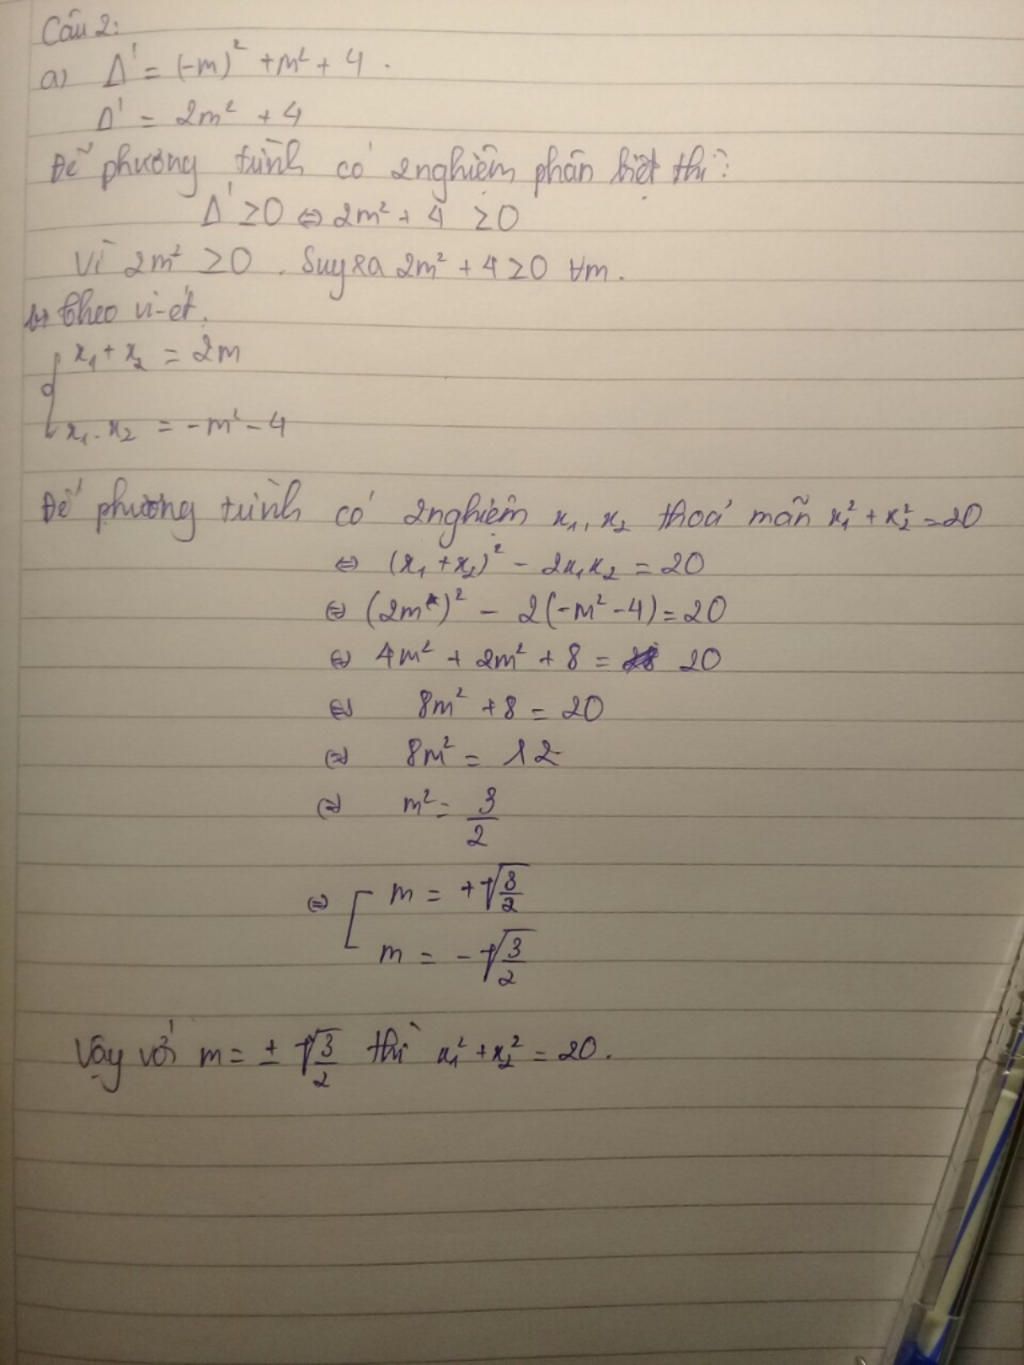 Câu 2:
a) Δ' = (-m)² + m² + 4.
Δ' = 2m² + 4
Để phương trình có 2 nghiệm phân biệt thì:
Δ' ≥ 0 ⇔ 2m² + 4 ≥ 0
Vì 2m² ≥ 0. Suy ra 2m² + 4 ≥ 0 ∀m.
b) theo vi-ét.
{ x₁ + x₂ = 2m
x₁. x₂ = -m² - 4
Để phương trình có 2 nghiệm x₁, x₂ thoả mãn x₁² + x₂² = 20
⇔ (x₁ + x₂)² - 2x₁x₂ = 20
⇔ (2m)² - 2(-m² - 4) = 20
⇔ 4m² + 2m² + 8 = 20
⇔ 8m² + 8 = 20
⇔ 8m² = 12
⇔ m² = 3/2
⇔ [ m = +√(3/2)
m = -√(3/2)
Vậy với m = ± √(3/2) thì x₁² + x₂² = 20.